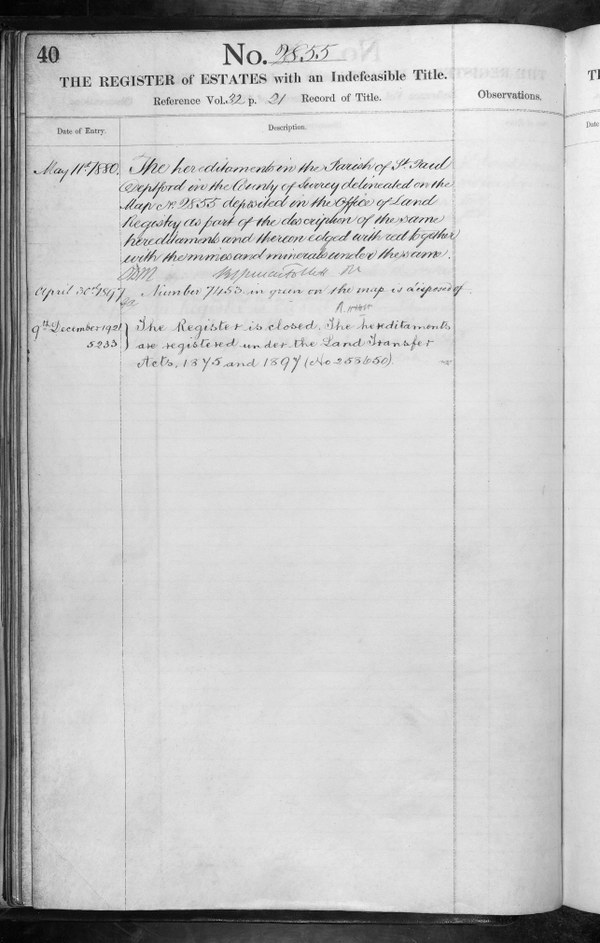 40
No. 2855
THE REGISTER of ESTATES with an Indefeasible Title.
Reference Vol. 32 p. 21 Record of Title.
Observations.
Date of Entry.
Description.
May 11th 1880.
The hereditaments in the Parish of St Paul
Deptford in the County of Surrey delineated on the
Map No. 2855 deposited in the Office of Land
Registry as part of the description of the same
hereditaments and thereon edged with red together
with the mines and minerals under the same.
April 30th 1897
Number 7453 in green on the map is disposed of
9th December 1921
5233
The Register is closed. The hereditaments
are registered under the Land Transfer
Acts, 1875 and 1897 (No 253650).